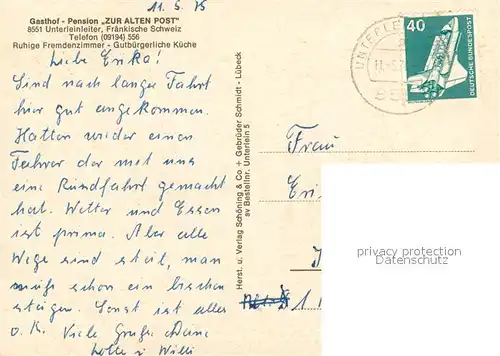 11. 5. 75
Gasthof - Pension „ZUR ALTEN POST"
8551 Unterleinleiter, Fränkische Schweiz
Telefon (09194) 556
Ruhige Fremdenzimmer - Gutbürgerliche Küche
Liebe Erika!
Sind nach langer Fahrt
hier gut angekommen.
Hatten wieder einen
Fahrer der mit uns
eine Rundfahrt gemacht
hat. Wetter und Essen
ist prima. Aber alle
Wege sind steil, man
muß schon ein bischen
steigen. Sonst ist alles
o. K. Viele Grüße Deine
Lotte u Willi
Herst. u. Verlag Schöning & Co + Gebrüder Schmidt - Lübeck
sv Bestellnr. Unterlein 5
40
DEUTSCHE BUNDESPOST
UNTERLE
11.-5.7
Frau
Eri
privacy protection
ansichtskartenversand.com
1